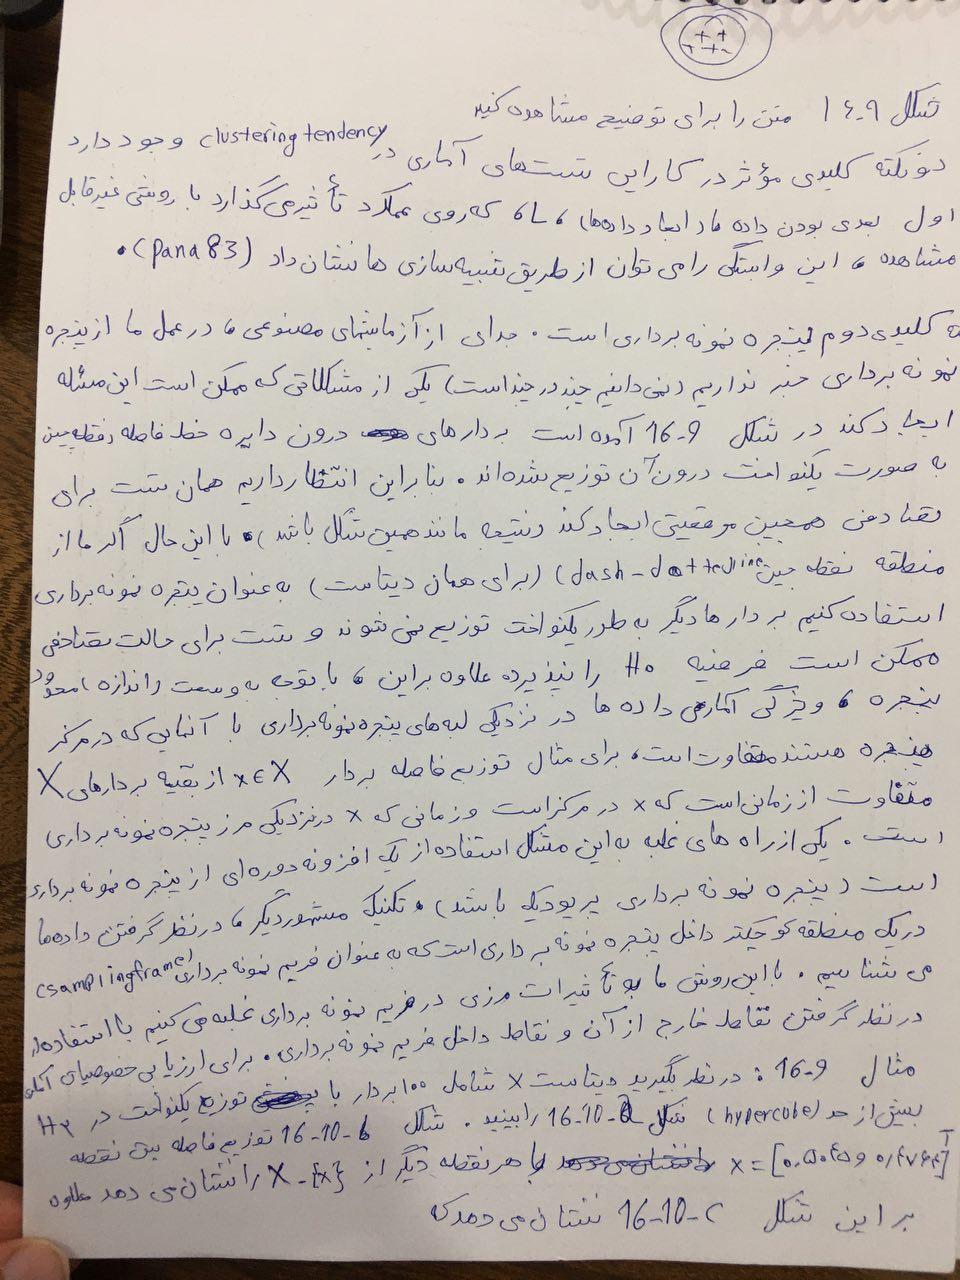 شکل ۱۶.۹ متن را برای توضیح مشاهده کنید
دو نکته کلیدی مؤثر در کارایی تست‌های آماری در clustering tendency وجود دارد
اول بعدی بودن داده ها (ابعاد داده‌ها)، L، که روی عملکرد تأثیر می‌گذارد با روشی غیرقابل
مشاهده، این وابستگی را می‌توان از طریق شبیه‌سازی ها نشان داد (Pana83).
کلیدی دوم پنجره نمونه برداری است. جدای از آزمایشهای مصنوعی، در عمل ما از پنجره
نمونه برداری خبر نداریم (نمی‌دانیم چی در چی است) یکی از مشکلاتی که ممکن است این مسئله
ایجاد کند در شکل 16-9 آمده است بردارهای درون دایره خط فاصله نقطه چین
به صورت یکنواخت درون آن توزیع شده‌اند. بنابراین انتظار داریم همان تست برای
تصادفی همچین موقعیتی ایجاد کند (نتیجه مانند همین شکل باشد). با این حال اگر ما از
منطقه نقطه چین (dash-dotted line) (برای همان دیتاست) به عنوان پنجره نمونه برداری
استفاده کنیم بردارها دیگر به طور یکنواخت توزیع نمی شوند و تست برای حالت تصادفی
ممکن است فرضیه H0 را نپذیرد علاوه براین، با توجه به وسعت و اندازه محدود
پنجره، ویژگی آماری داده ها در نزدیکی لبه‌های پنجره نمونه برداری با آنهایی که در مرکز
پنجره هستند متفاوت است، برای مثال توزیع فاصله بردار x∈X از بقیه بردارهای X
متفاوت از زمانی است که x در مرکز است و زمانی که x در نزدیکی مرز پنجره نمونه برداری
است. یکی از راه های غلبه به این مشکل استفاده از یک افزونه دوره ای از پنجره نمونه برداری
است (پنجره نمونه برداری پریودیک باشد). تکنیک مشهور دیگر، در نظر گرفتن داده‌ها
در یک منطقه کوچکتر داخل پنجره نمونه برداری است که به عنوان فریم نمونه برداری (sampling frame)
می شناسیم. با این روش ما بر تأثیرات مرزی در فریم نمونه برداری غلبه می کنیم با استفاده از
در نظر گرفتن نقاط خارج از آن و نقاط داخل فریم نمونه برداری. برای ارزیابی خصوصیات
مثال 16-9: در نظر بگیرید دیتاست X شامل ۱۰۰ بردار با توزیع یکنواخت در H2
بیش از حد (hypercube) شکل 16-10-a را ببینید. شکل 16-10-b توزیع فاصله بین نقطه
x = [۰.۵۰۴۵ و ۰/۴۷۶۴] با هر نقطه دیگر از X-{x} را نشان می دهد علاوه
بر این شکل 16-10-c نشان می دهد که